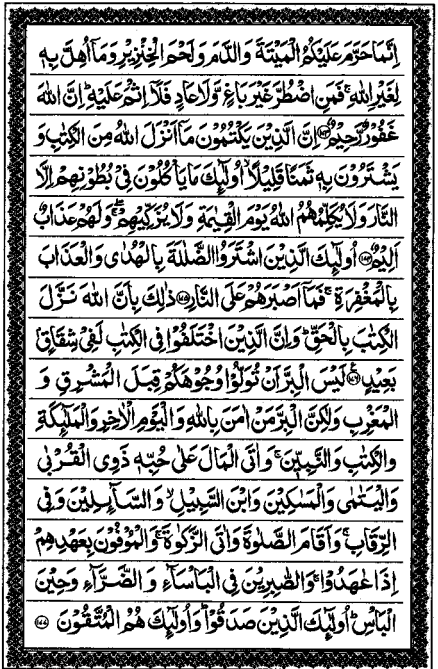 اِنَّمَا حَرَّمَ عَلَيْكُمُ الْمَيْتَةَ وَالدَّمَ وَلَحْمَ الْخِنْزِيْرِ وَمَاۤ اُهِلَّ بِهٖ
لِغَيْرِ اللّٰهِۚ فَمَنِ اضْطُرَّ غَيْرَ بَاغٍ وَّلَا عَادٍ فَلَاۤ اِثْمَ عَلَيْهِؕ اِنَّ اللّٰهَ
غَفُوْرٌ رَّحِيْمٌ ﴿١٧٣﴾ اِنَّ الَّذِيْنَ يَكْتُمُوْنَ مَاۤ اَنْزَلَ اللّٰهُ مِنَ الْكِتٰبِ وَ
يَشْتَرُوْنَ بِهٖ ثَمَنًا قَلِيْلًاۙ اُولٰٓئِكَ مَا يَاْكُلُوْنَ فِيْ بُطُوْنِهِمْ اِلَّا
النَّارَ وَلَا يُكَلِّمُهُمُ اللّٰهُ يَوْمَ الْقِيٰمَةِ وَلَا يُزَكِّيْهِمْۖۚ وَلَهُمْ عَذَابٌ
اَلِيْمٌ ﴿١٧٤﴾ اُولٰٓئِكَ الَّذِيْنَ اشْتَرَوُا الضَّلٰلَةَ بِالْهُدٰى وَالْعَذَابَ
بِالْمَغْفِرَةِۚ فَمَاۤ اَصْبَرَهُمْ عَلَى النَّارِ ﴿١٧٥﴾ ذٰلِكَ بِاَنَّ اللّٰهَ نَزَّلَ
الْكِتٰبَ بِالْحَقِّؕ وَاِنَّ الَّذِيْنَ اخْتَلَفُوْا فِى الْكِتٰبِ لَفِيْ شِقَاقٍۭ
بَعِيْدٍ ﴿١٧٦﴾ لَيْسَ الْبِرَّ اَنْ تُوَلُّوْا وُجُوْهَكُمْ قِبَلَ الْمَشْرِقِ وَ
الْمَغْرِبِ وَلٰكِنَّ الْبِرَّ مَنْ اٰمَنَ بِاللّٰهِ وَالْيَوْمِ الْاٰخِرِ وَالْمَلٰٓئِكَةِ
وَالْكِتٰبِ وَالنَّبِيّٖنَۚ وَاٰتَى الْمَالَ عَلٰى حُبِّهٖ ذَوِى الْقُرْبٰى
وَالْيَتٰمٰى وَالْمَسٰكِيْنَ وَابْنَ السَّبِيْلِۙ وَالسَّآئِلِيْنَ وَفِى
الرِّقَابِۚ وَاَقَامَ الصَّلٰوةَ وَاٰتَى الزَّكٰوةَۚ وَالْمُوْفُوْنَ بِعَهْدِهِمْ
اِذَا عٰهَدُوْاۚ وَالصّٰبِرِيْنَ فِى الْبَاْسَآءِ وَالضَّرَّآءِ وَحِيْنَ
الْبَاْسِؕ اُولٰٓئِكَ الَّذِيْنَ صَدَقُوْاؕ وَاُولٰٓئِكَ هُمُ الْمُتَّقُوْنَ ﴿١٧٧﴾